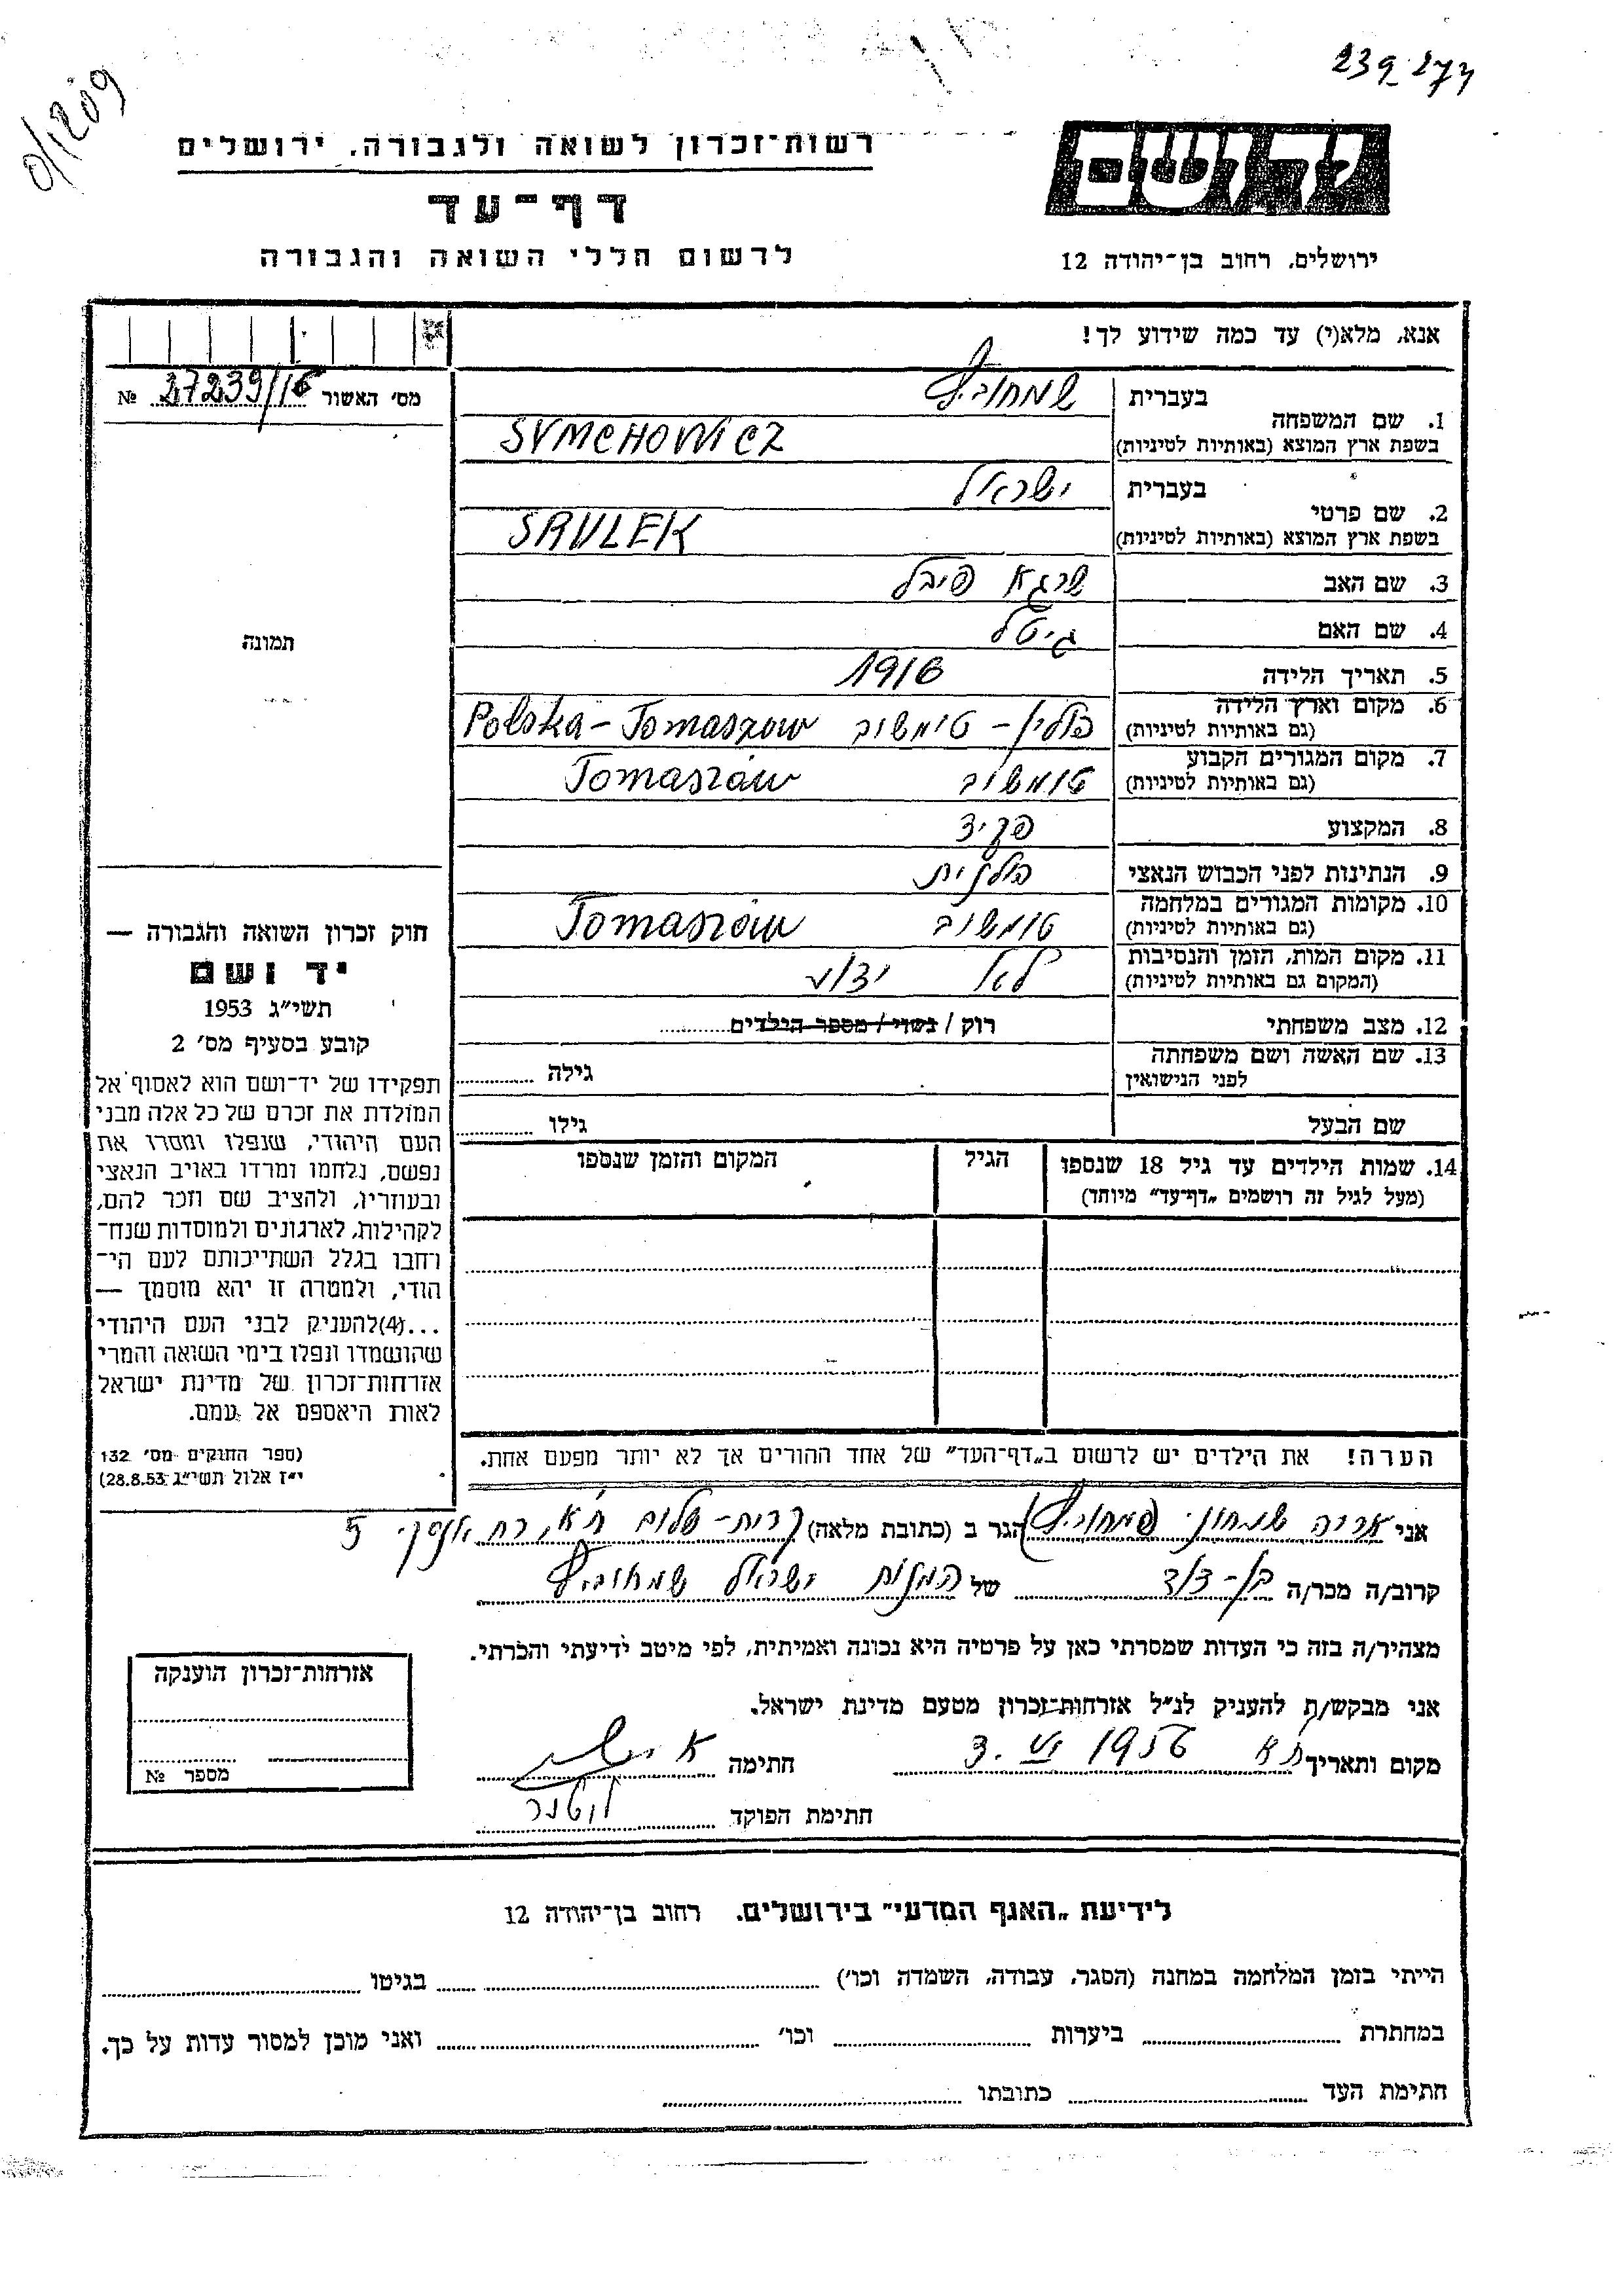 239 274
0/1209
יד ושם
ירושלים, רחוב בן־יהודה 12
רשות־זכרון לשואה ולגבורה, ירושלים
דף־עד
לרשום חללי השואה והגבורה
אנא, מלא(י) עד כמה שידוע לך!
מס' האשור № 27239/16
1. שם המשפחה
בעברית שמחוביץ
בשפת ארץ המוצא (באותיות לטיניות) SYMCHOWICZ
2. שם פרטי
בעברית ישראל
בשפת ארץ המוצא (באותיות לטיניות) SRULEK
3. שם האב שרגא פיבל
4. שם האם גיטל
5. תאריך הלידה 1916
6. מקום וארץ הלידה
(גם באותיות לטיניות) פולין - טומשוב Polska - Tomaszow
7. מקום המגורים הקבוע
(גם באותיות לטיניות) טומשוב Tomaszów
8. המקצוע פקיד
9. הנתינות לפני הכבוש הנאצי פולנית
10. מקומות המגורים במלחמה
(גם באותיות לטיניות) טומשוב Tomaszów
11. מקום המות, הזמן והנסיבות
(המקום גם באותיות לטיניות) לא ידוע
12. מצב משפחתי רוק / נשוי / מספר הילדים
13. שם האשה ושם משפחתה
לפני הנישואין גילה
שם הבעל גילו
14. שמות הילדים עד גיל 18 שנספו הגיל המקום והזמן שנספו
(מעל לגיל זה רושמים „דף־עד" מיוחד)
הערה! את הילדים יש לרשום ב„דף־העד" של אחד ההורים אך לא יותר מפעם אחת.
תמונה
חוק זכרון השואה והגבורה —
יד ושם
תשי"ג 1953
קובע בסעיף מס' 2
תפקידו של יד־ושם הוא לאסוף אל
המולדת את זכרם של כל אלה מבני
העם היהודי, שנפלו ומסרו את
נפשם, נלחמו ומרדו באויב הנאצי
ובעוזריו, ולהציב שם וזכר להם,
לקהילות, לארגונים ולמוסדות שנח־
רחבו בגלל השתייכותם לעם הי־
הודי, ולמטרה זו יהא מוסמך —
...(4)להעניק לבני העם היהודי
שהושמדו ונפלו בימי השואה והמרי
אזרחות־זכרון של מדינת ישראל
לאות היאספם אל עמם.
(ספר החוקים מס' 132
י"ז אלול תשי"ג 28.8.53)
אני אריה שמחוני (שמחוביץ) הגר ב (כתובת מלאה) קרית - שלום ת"א, רח 5
קרוב/ה מכר/ה בן - דוד של המנוח ישראל שמחוביץ
מצהיר/ה בזה כי העדות שמסרתי כאן על פרטיה היא נכונה ואמיתית, לפי מיטב ידיעתי והכרתי.
אני מבקש/ת להעניק לנ"ל אזרחות־זכרון מטעם מדינת ישראל.
מקום ותאריך ת"א 3. VI 1956 חתימה
חתימת הפוקד
אזרחות־זכרון הוענקה
מספר №
לידיעת „האגף המדעי" בירושלים, רחוב בן־יהודה 12
הייתי בזמן המלחמה במחנה (הסגר, עבודה, השמדה וכו') בגיטו
במחתרת ביערות וכו' ואני מוכן למסור עדות על כך.
חתימת העד כתובתו